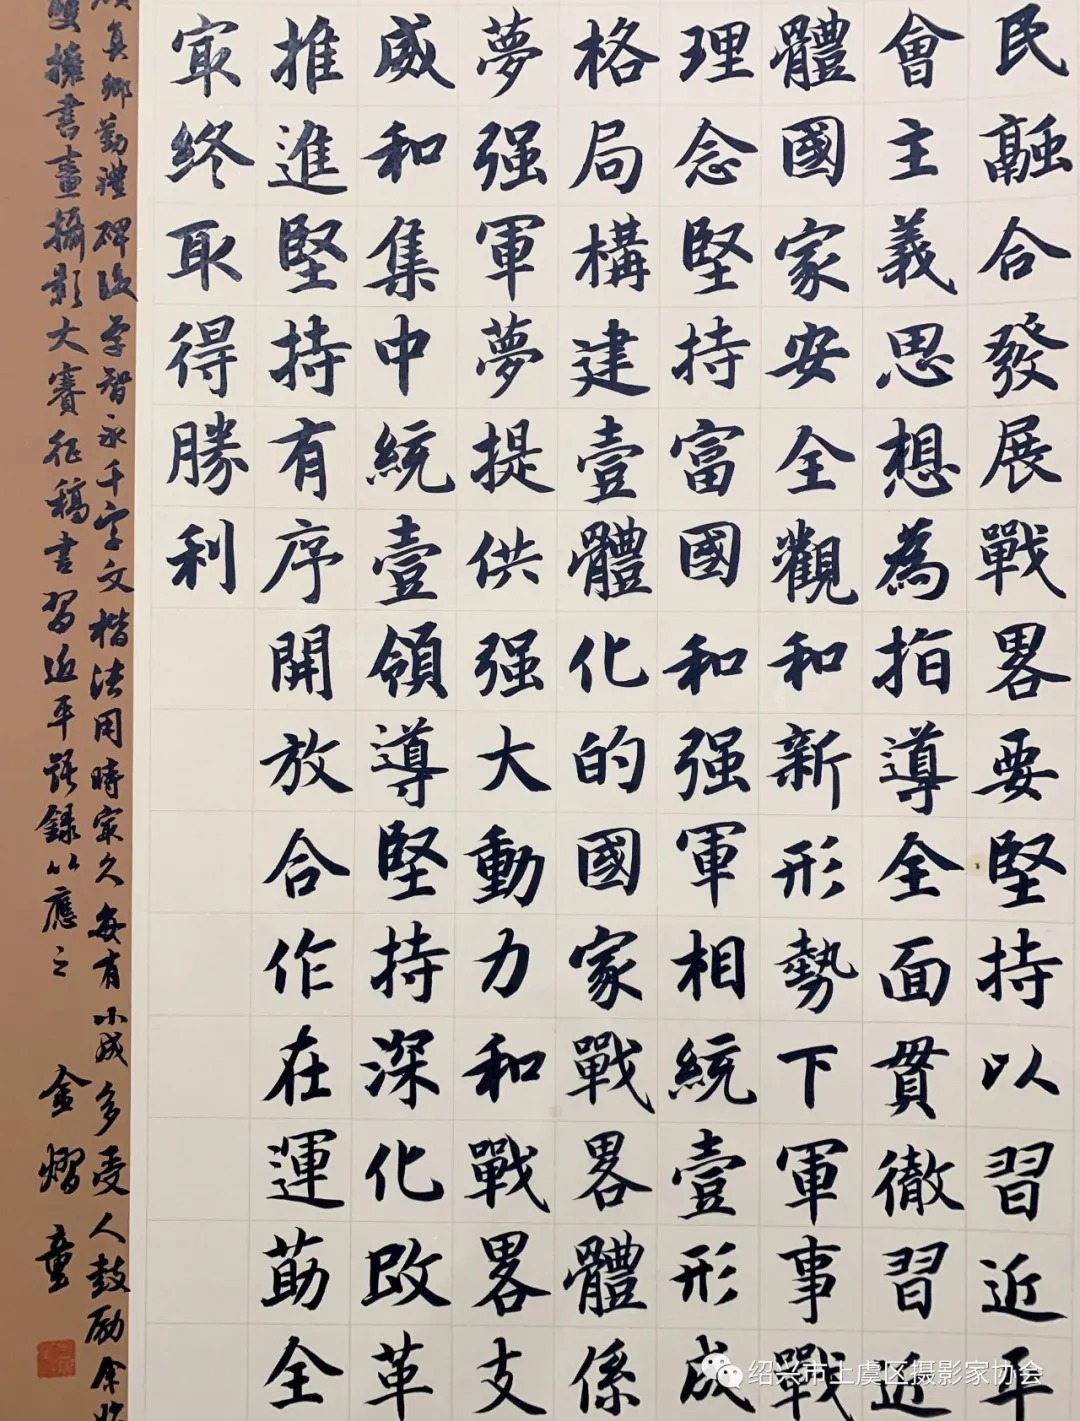 民融合發展戰畧要堅持以習近平
會主義思想為指導全面貫徹習近
體國家安全觀和新形勢下軍事戰
理念堅持富國和强軍相統壹形成
格局構建壹體化的國家戰畧體係
夢强軍夢提供强大動力和戰畧支
威和集中統壹領導堅持深化改革
推進堅持有序開放合作在運莇全
冣終取得勝利
真卿勤禮碑後学智永千字文楷法用時冣久每有小成多受人鼓励余
雙擁書畫攝影大賽征稿書習近平語録以應之 金熠童
绍兴市上虞区摄影家协会